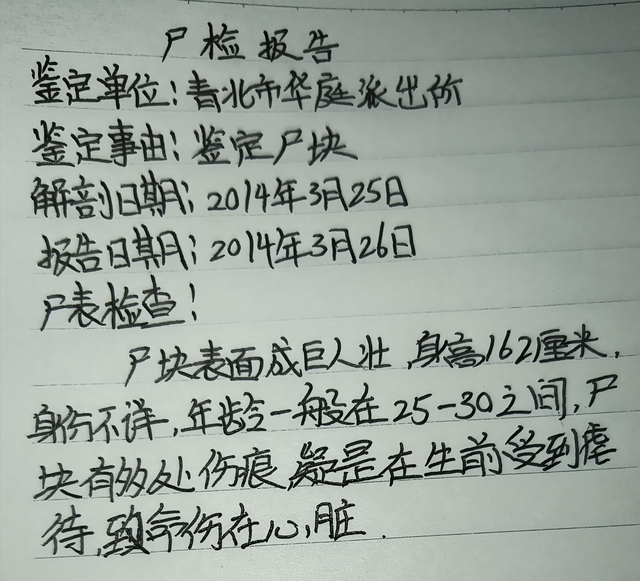 尸检报告
鉴定单位：春北市华庭派出价
鉴定事由：鉴定尸块
解剖日期：2014年3月25日
报告日期：2014年3月26日
尸表检查！
尸块表面成巨人壮，身高162厘米，
身份不详，年龄一般在25-30之间，尸
块有多处伤痕，疑是在生前受到虐
待，致命伤在心脏.